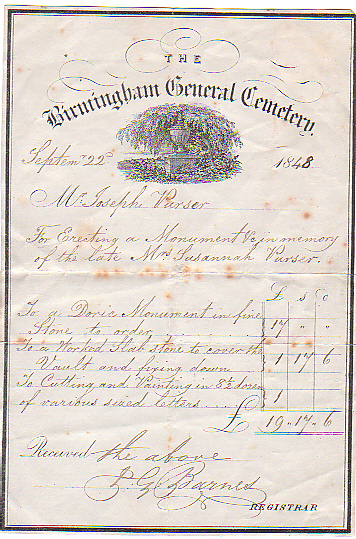 THE
Birmingham General Cemetery.
Septemr 22d 1848
Mr. Joseph Purser
For Erecting a Monument &c in memory
of the late Mrs Susannah Purser.
£ s d
To a Doric Monument in fine
Stone to order 17 " "
To a Worked Slab stone to cover the
Vault and fixing down 1 17 6
To Cutting and Painting in 8½ dozen
of various sized letters 1
£ 19 " 17 " 6
Received the above
J. G. Barnes
REGISTRAR